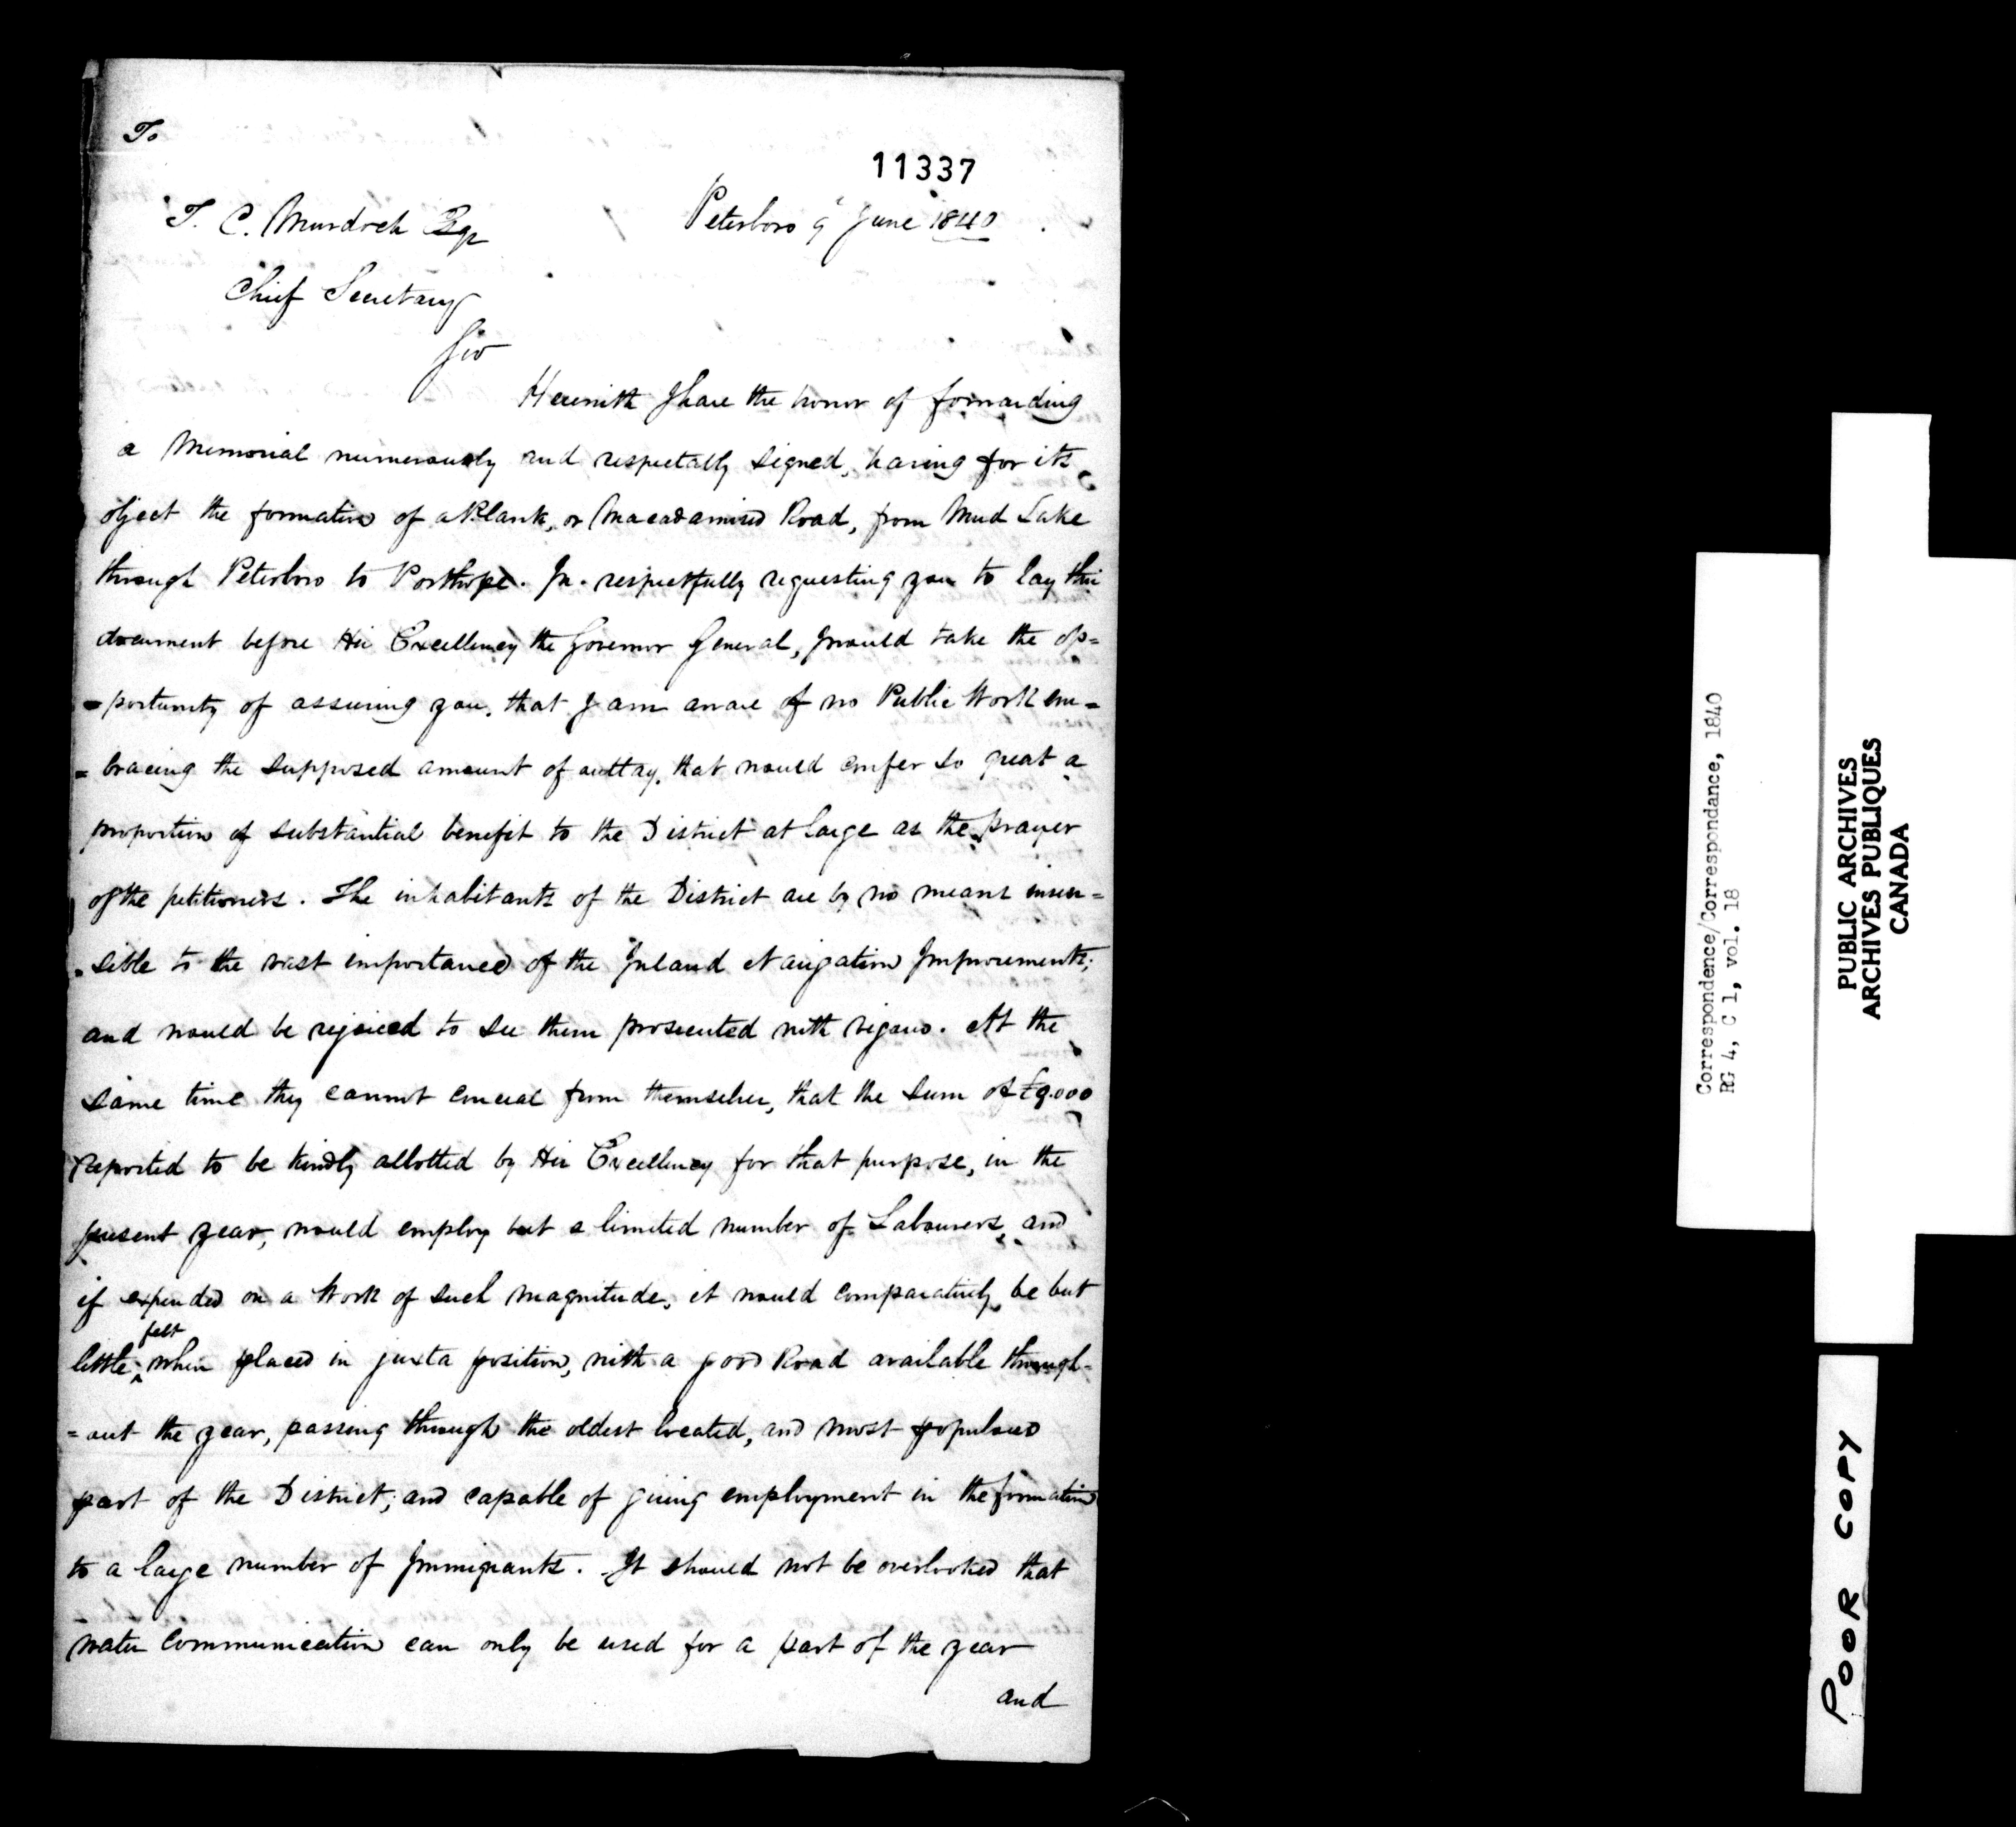 To
11337
T. C. Murdoch Esqr
Peterboro 9 June 1840
Chief Secretary
Sir
Herewith I have the honor of forwarding
a Memorial numerously and respectably signed, having for its
object the formation of a Plank, or Macadamised Road, from Mud Lake
through Peterboro to Porthope. In respectfully requesting you to lay this
document before His Excellency the Governor General, I would take the op=
=portunity of assuring you, that I am aware of no Public Work em=
=bracing the supposed amount of outlay, that would confer so great a
proportion of substantial benefit to the District at large as the prayer
of the petitioners. The inhabitants of the District are by no means insen=
=sible to the vast importance of the Inland Navigation Improvements;
and would be rejoiced to see them prosecuted with vigour. At the
same time they cannot conceal from themselves, that the sum of £9.000
reported to be kindly allotted by His Excellency for that purpose, in the
present year, would employ but a limited number of Labourers, and
if expended on a Work of such magnitude, it would comparatively be but
little ^felt when placed in juxta position, with a good Road available through=
=out the year, passing through the oldest located, and most populous
part of the District; and capable of giving employment in the formation
to a large number of Immigrants. It should not be overlooked that
water communication can only be used for a part of the year
and
Correspondence/Correspondance, 1840
RG 4, C 1, vol. 18
PUBLIC ARCHIVES
ARCHIVES PUBLIQUES
CANADA
POOR COPY